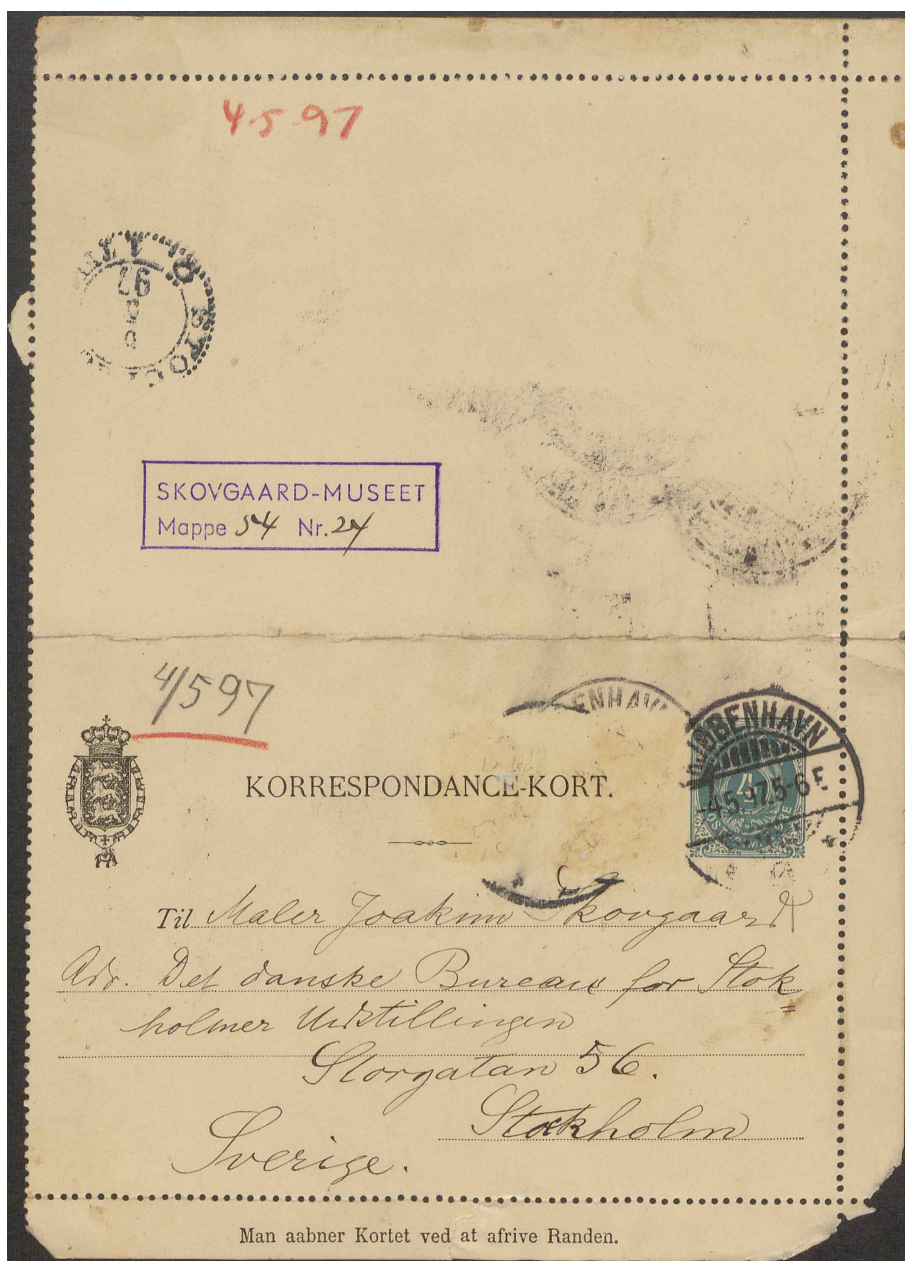 4 5 97
97
STOCK
SKOVGAARD-MUSEET
Mappe 54 Nr. 24
4/5 97
KJØBENHAVN
4.5.97.5-6 E.
4
KORRESPONDANCE-KORT.
Til Maler Joakim Skovgaard
Adr. Det danske Bureau for Stok
holmer Udstillingen
Storgatan 56.
Stokholm
Sverige.
Man aabner Kortet ved at afrive Randen.